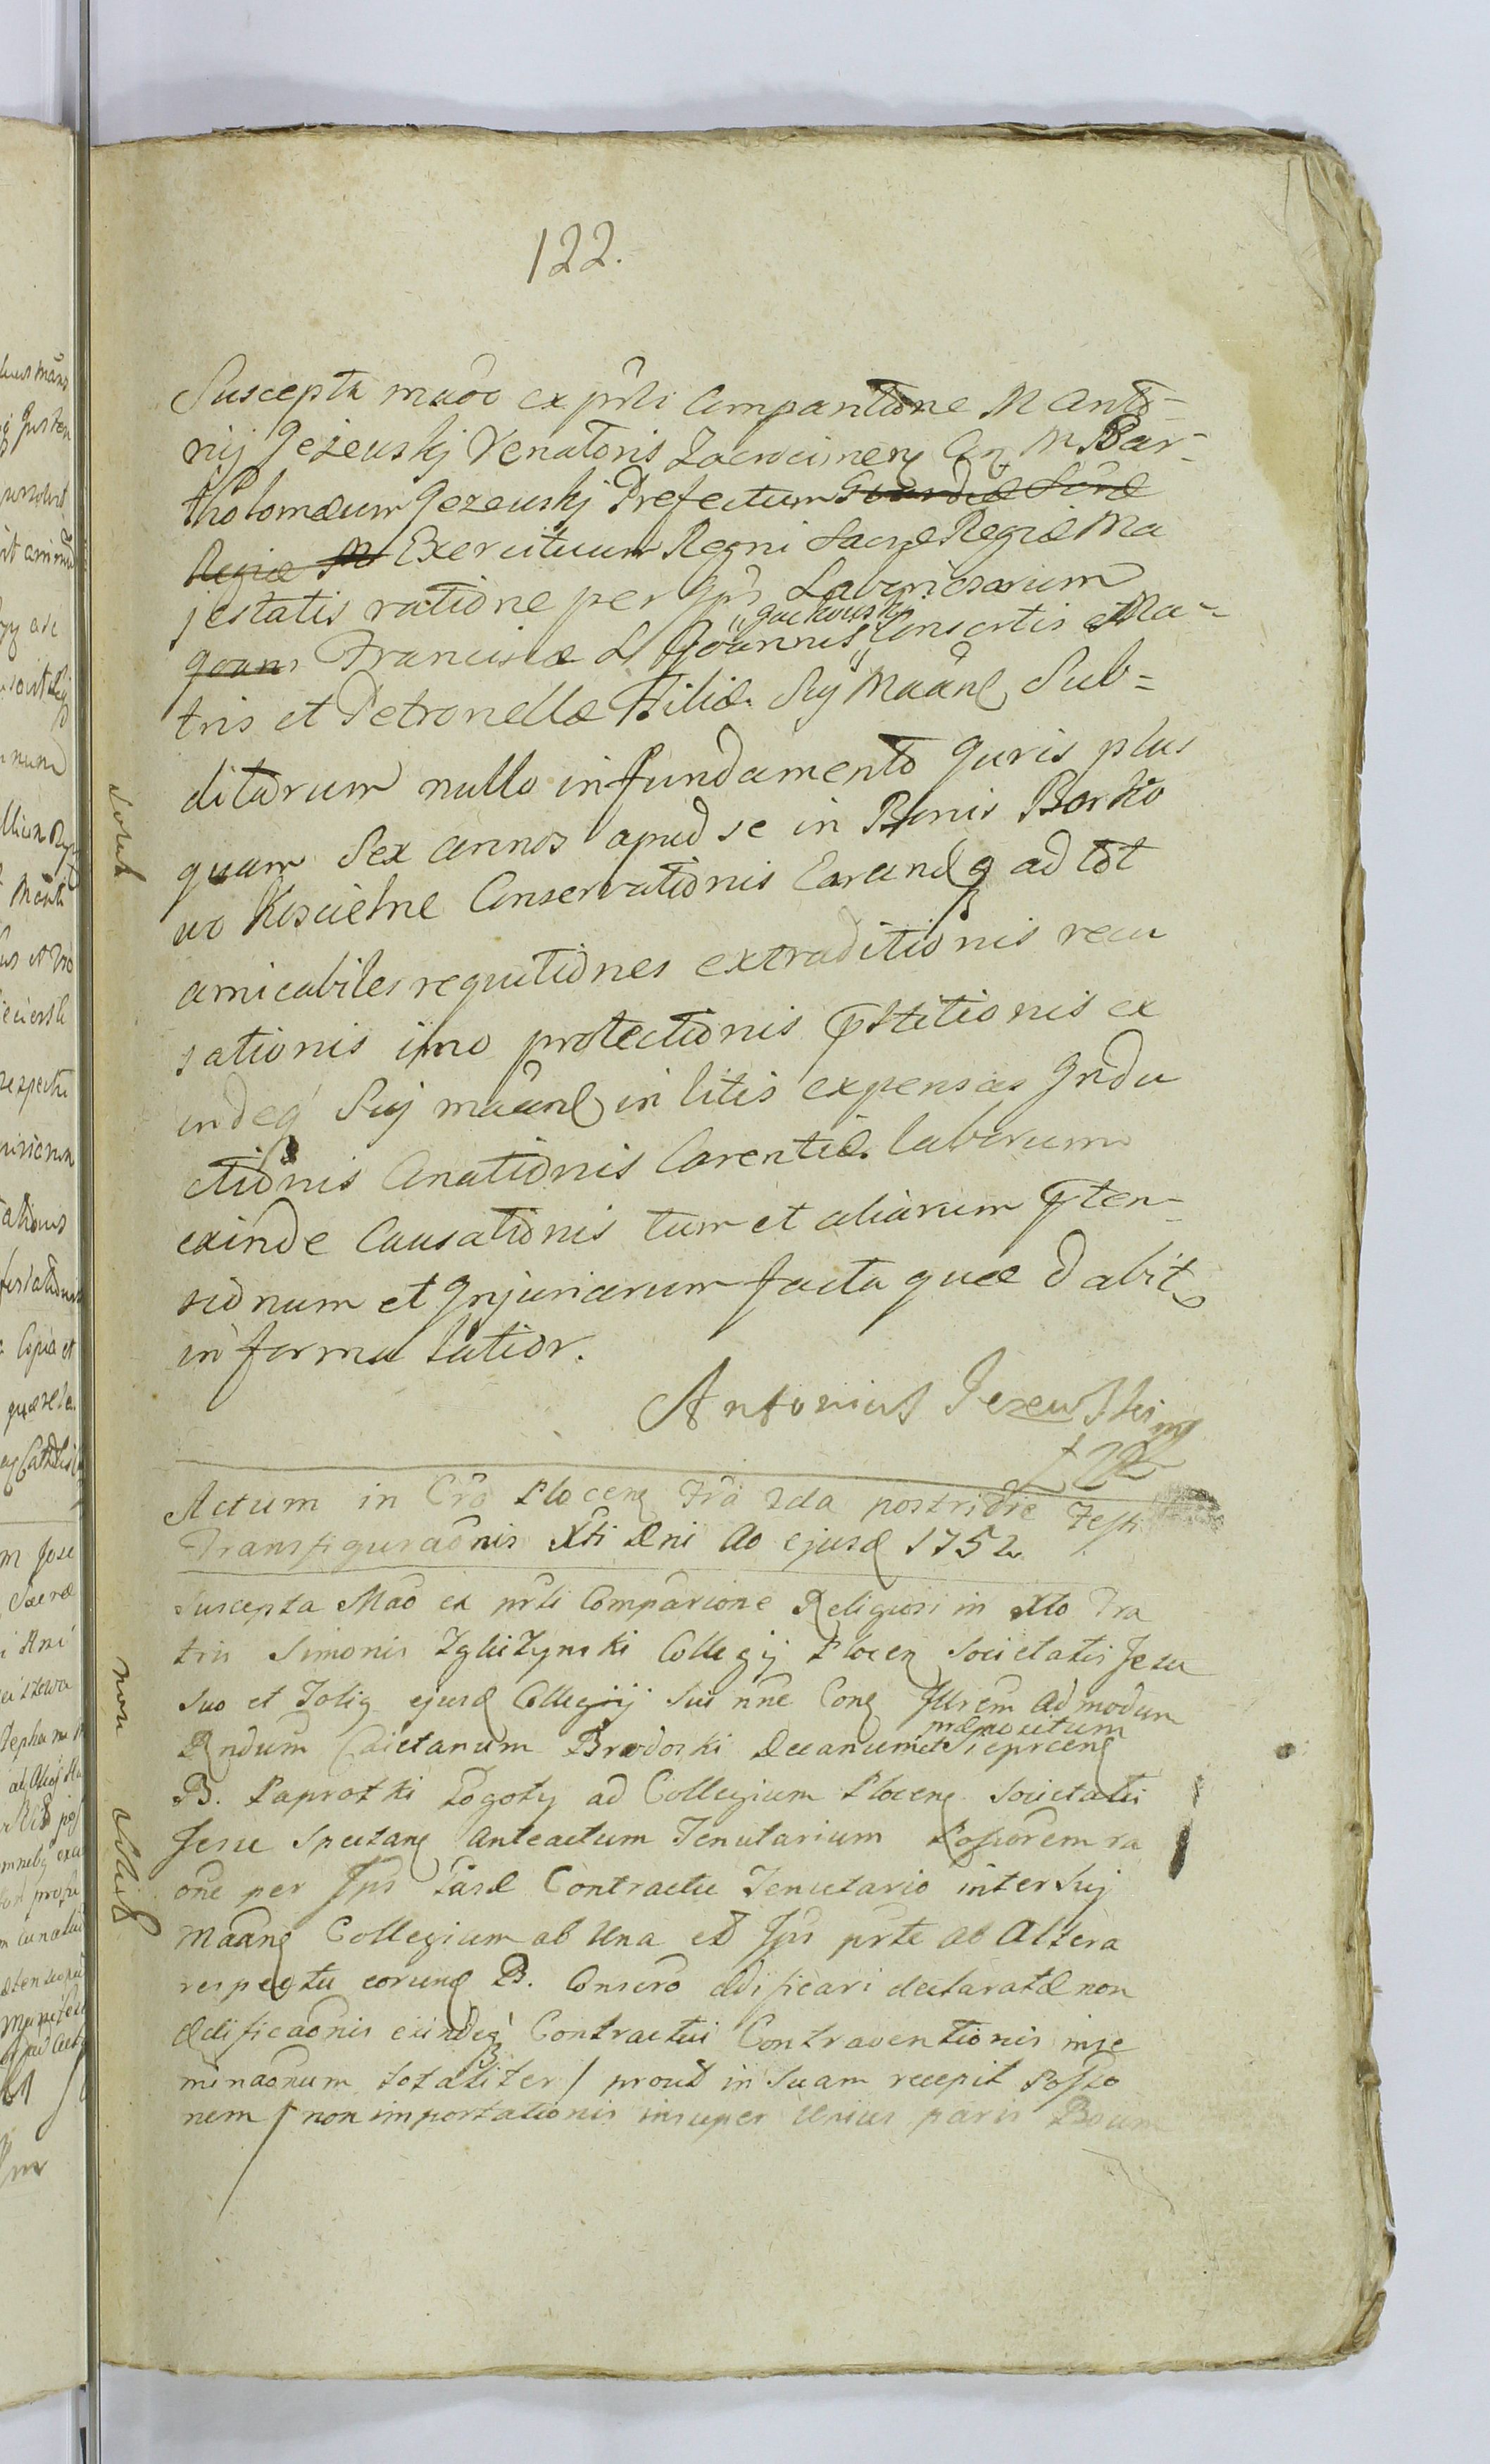 122.
Suscepta maõo ex prli Comparitione M Anto-
nij Jeżewskj Venatoris Zacrocimen Con M Bar-
tholomæum Jezewskj Prefectum Guardiæ Sacræ
Regiæ M Exercituum Regni Sacræ Regiæ Ma
jestatis ratione per Ips Laboriosarum
Joans Franciscæ L Joannis Consortis Ma-
tris et Petronellæ Filiæ. Suj Maãnt Sub=
ditarum nullo in fundamento Juris plus
quam Sex annos apud se in Bonis Borko
wo Koscielne Conservationis Earundq ad tot
amicabiles requitiones extraditionis recu
sationis imo protectionis pstitionis ex
indeq Suj maãnt in litis expensas Indu
ctionis Conationis Carentiæ. laborum
exinde Causationis tum et aliarum pten-
sionum et Injuriarum facta quæ dabit
in forma latior.
Antonius Jezewski mp
Actum in Crõ Plocen Fra 2da postridie Festi
Transfiguraõnis Xti Dni Ao ejusd 1752
Suscepta Mao ex prli Comparione Religiosi in Xto Fra
tris Simonis Zgliczynski Collegij Plocen Societatis Jesu
suo et Totig ejusd Collegij sui nne Con Illrem Admodum
Rndum Caietanum Brodoski Decanum et præpositum Sieprcen
B. Paprotki Łogoty ad Collegium Plocen Societatis
Jesu Spectan anteactum Tenutarium Possorem ra
one per Ips Casd Contractu Tenutario inter Suj
Maãn Collegium ab Una et Ips prte ab Altera
respectu eorund B. Conscro ædificari declaratæ non
ædificaõnis eiindeq Contractui Contraventionis inse
minaõnum totaliter / prout in Suam recepit Possio
nem / non importationis insuper Unius paris Boum
Solut
non Solvit